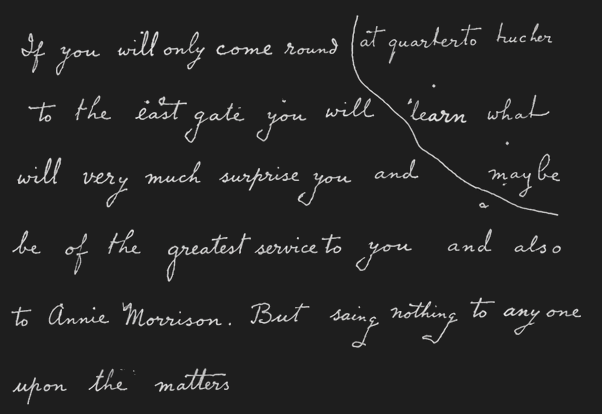 If you will only come round at quarter to
to the east gate you will learn what
will very much surprise you and maybe
be of the greatest service to you and also
to Annie Morrison. But saing nothing to any one
upon the matters